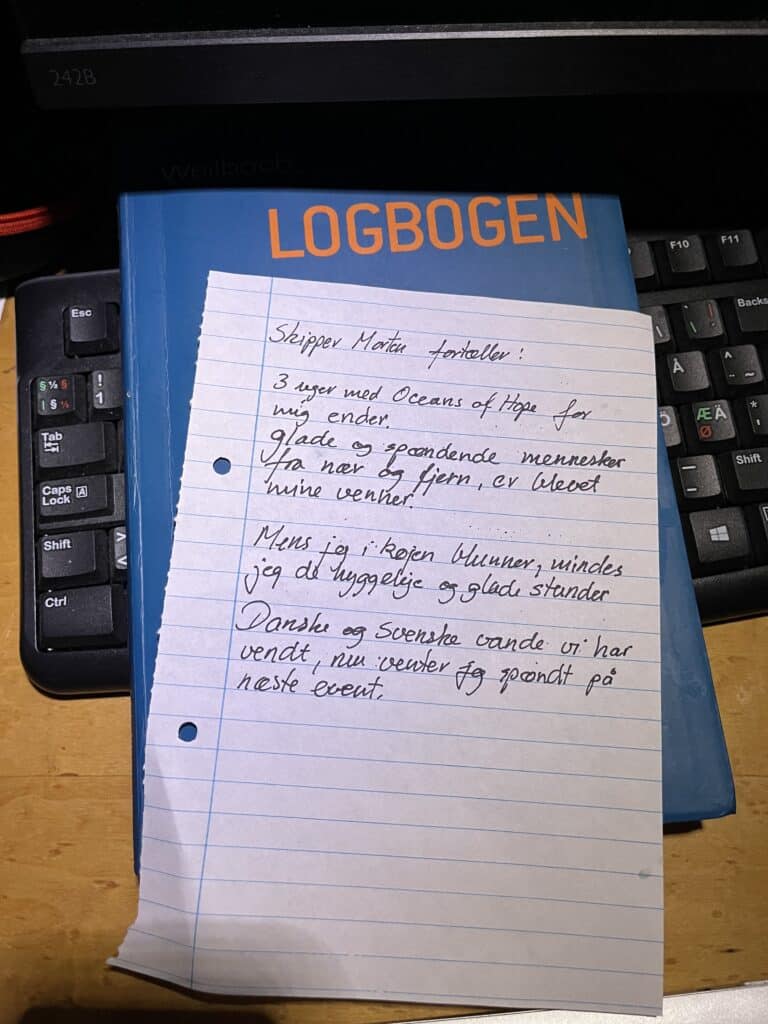 242B
LOGBOGEN
Skipper Morten fortæller!
3 uger med Oceans of Hope for
mig ender.
glade og spændende mennesker
fra nær og fjern, er blevet
mine venner.
Mens jeg i køjen blunner, mindes
jeg de hyggelije og glade stunder
Danske og Svenske vande vi har
vendt, nu venter jeg spændt på
næste event.
Esc
F10
F11
Backs
§ ½ §
§ ½
!
1
Tab
Caps
Lock A
Shift
Ctrl
>
<
\
Å
^
¨ ~
Ö
Æ Ä
Ø
*
'
Shift